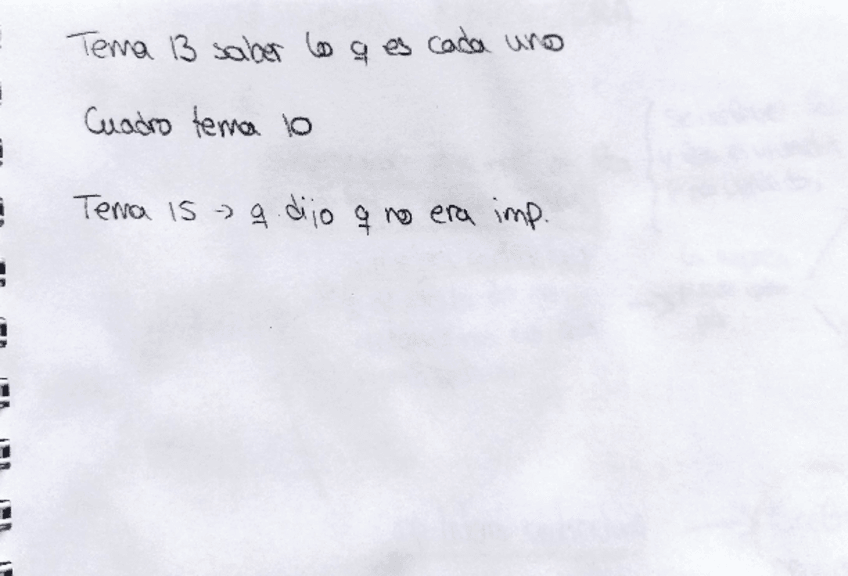 Tema 13 saber lo q es cada uno
Cuadro tema 10
Tema 15 -> q dijo q no era imp.